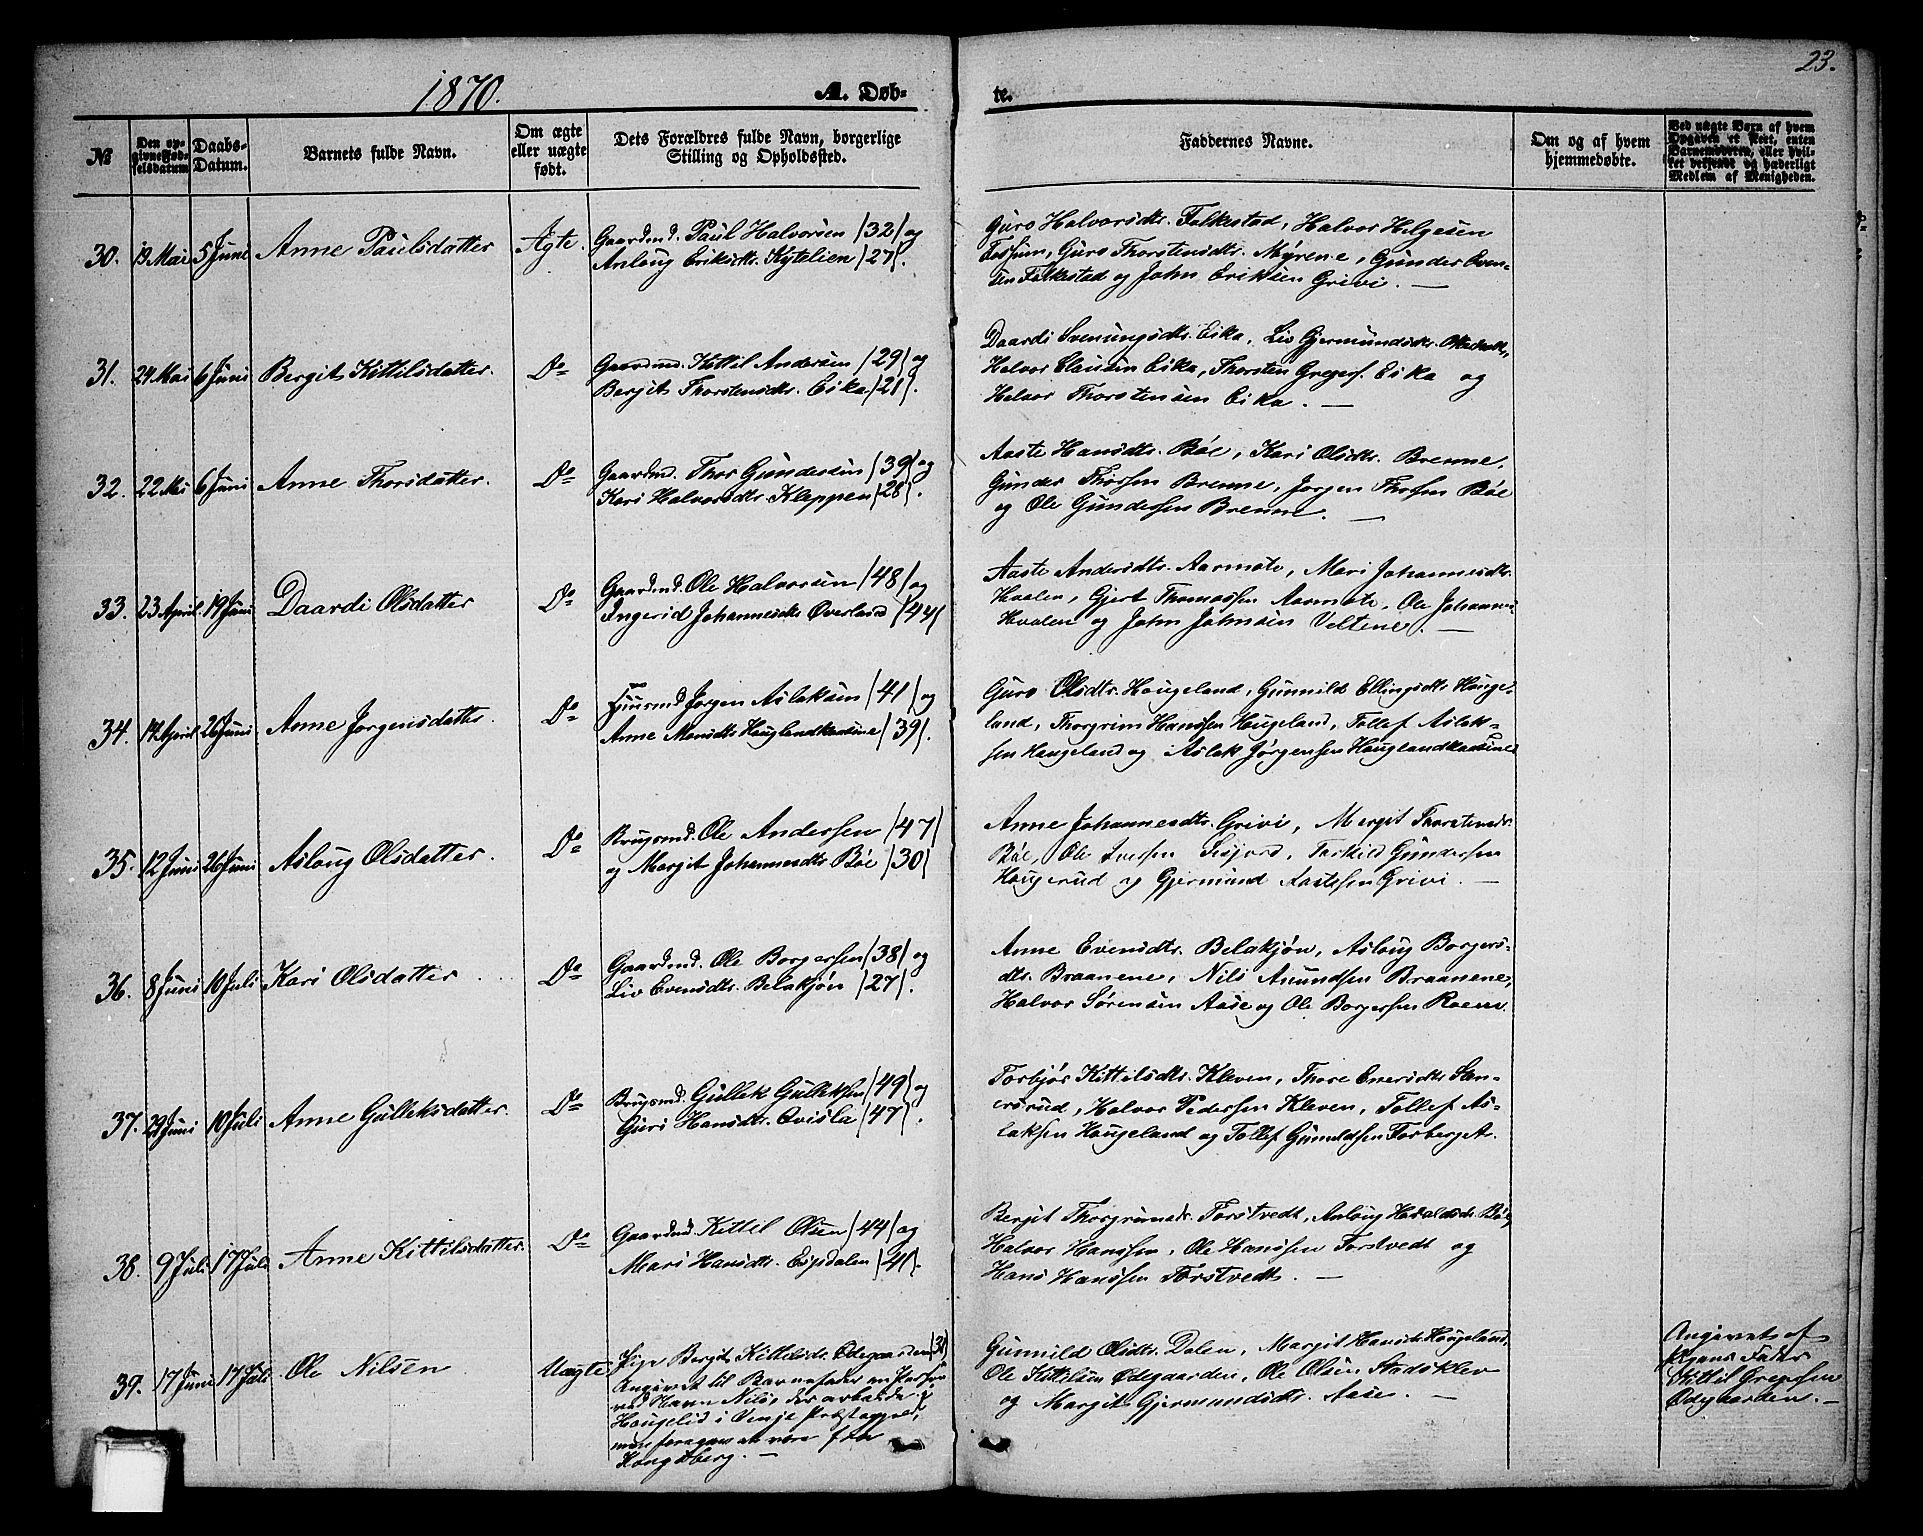 1870.
A. Døb-
te.
23.
№
Den op-
givne Fød-
selsdatum
Daabs-
Datum.
Barnets fulde Navn.
Om ægte
eller uægte
født.
Dets Forældres fulde Navn, borgerlige
Stilling og Opholdssted.
Faddernes Navne.
Om og af hvem
hjemmedøbte.
Ved uægte Børn af hvem
Opgaven er skeet, enten
Barnemoderen, eller hvil-
ket bekjendt og hæderligt
Medlem af Menigheden.
30. 19 Mai 5 Juni Anne Paulsdatter Ægte Gaardmd. Paul Halvorsen (32) og
Anloug Eriksdtr. Kytelien (27).
Guro Halvorsdtr. Folkestad, Halvor Helgesen
Guro Thorstensdtr. Myrene, Gunder Even-
sen Folkestad og John Eriksen Grivi. —
31. 24 Mai 6 Juni Bergit Kittilsdatter. Do Gaardmd. Kittil Andersen (29) og
Bergit Thorstensdtr. Eika (21).
Daardi Svenungsdtr. Eika, Liv Gjermundsdtr.
Halvor Clausen Eika, Thorsten Gregers. Eika og
Halvor Thorstensen Eika. —
32. 22 Mai 6 Juni Anne Thorsdatter. Do Gaardmd. Thor Gundersen (39) og
Kari Halvorsdtr. Kleppen (28).
Aaste Hansdtr. Bøe, Kari Olsdtr. Brenne,
Gunder Thorsen Brenne, Jørgen Thorsen Bøe
og Ole Gundersen Brenne. —
33. 23 April 19 Juni Daardi Olsdatter Do Gaardmd. Ole Halvorsen (48) og
Ingerid Johannesdtr Overland (44)
Aaste Andersdtr. Aarmote, Mari Johannesdtr.
Hvalen, Gjert Thomassen Aarmote, Ole Johannes
Hvalen og John Johnsen Veltene. —
34. 14 April 26 Juni Anne Jørgensdatter Do Huusmd Jørgen Aslaksen (41) og
Anne Monsdtr Houglandkaasine (39).
Guro Olsdtr. Hougeland, Gunnild Ellingsdtr Houge-
land, Thorgrim Hanssen Hougeland, Tollef Aslak-
sen Hougeland og Aslak Jørgensen Houglandkaasine
35. 12 Juni 26 Juni Asloug Olsdatter. Do Brugsmd. Ole Anderssen (47)
og Margit Johannesdtr Bøe (30)
Anne Johannesdtr. Grivi, Margit Thorstensdtr.
Bøe, Ole Iversen Terkild Gundersen
Hougerud og Gjermund Aastssen Grivi. —
36. 8 Juni 10 Juli Kari Olsdatter Do Gaardmd. Ole Borgersen (38) og
Liv Evensdtr. Belakjøn (27).
Anne Evensdtr. Belakjøn, Asloug Borgers-
dtr. Braanene, Nils Amundsen Braanene,
Halvor Sørensen Aase og Ole Borgersen Roem.
37. 29 Juni 10 Juli Anne Gulleksdatter. Do Brugsmd. Gullek Gulleksen (49) og
Guri Hansdtr. Evisla (47).
Torbjør Kittilsdtr. Kleven, Thore Enersdtr San-
ersrud, Halvor Pedersen Kleven, Tollef As-
laksen Hougeland og Tollef Gunuldsen Forberget.
38. 9 Juli 17 Juli Anne Kittilsdatter. Do Gaardmd Kittil Olsen (44) og
Mari Hansdtr. Eispdalen (41).
Bergit Thorgrimsdtr. Forstvedt, Anloug Haraldsdtr. Bøe,
Halvor Hanssen, Ole Hanssen Forstvedt og
Hans Hanssen Forstvedt. —
39. 17 Juni 17 Juli Ole Nilsen Uægte Pige Bergit Kittilsdtr. Ødegaarden (31)
Angivet til Barnefader en Person
ved Navn Nils, der arbeidede i
Haugelid i Vinje Præstegjeld,
men foregav at være fra
Kongsberg. —
Gunnild Olsdtr. Dalen, Margit Hansdtr. Hougeland,
Ole Kittilsen Ødegaarden, Ole Olsen Stadsklev
og Margit Gjermundsdtr. Aase. —
Angivet af
Pigens Fader
Kittil Gregersen
Ødegaarden. —